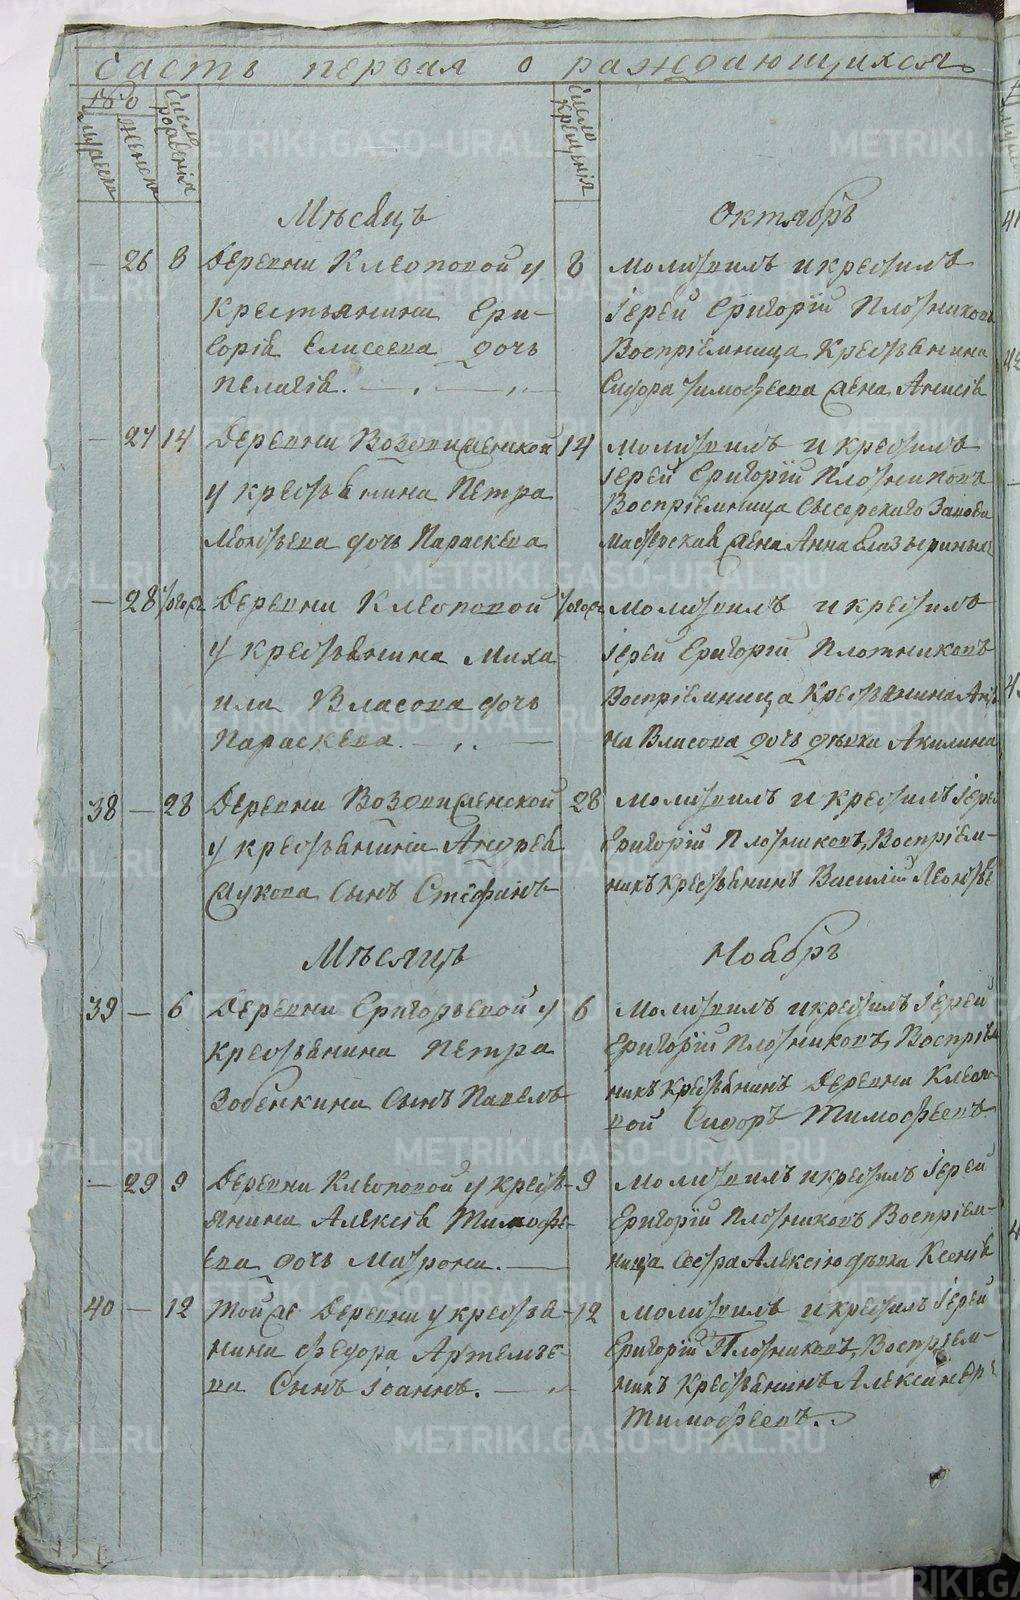 Часть первая о раждающихся
Число рожденія
Число крещенія
Мѣсяцъ Октябрь
26 8 Деревни Клеоповой у
крестьянина Гри-
горія Елисеева дочь
Пелагія.
8 Молитвилъ и крестилъ
Іерей Григорій Плотниковъ
Воспріемница Крестьянина
Сидора Тимофеева жена Анисія
27 14 Деревни Воздвиженской
у крестьянина Петра
Леонтьева дочь Параскева
14 Молитвилъ и крестилъ
Іерей Григорій Плотниковъ
Воспріемница Сысерскаго Завода
мастерская жена Анна
28 тогожъ Деревни Клеоповой
у крестьянина Миха-
ила Власова дочь
Параскева.
тогожъ Молитвилъ и крестилъ
Іерей Григорій Плотниковъ
Воспріемница Крестьянина
на Власова дочь дѣвка Акилина
38 28 Деревни Воздвиженской
у крестьянина Андрея
Жукова сынъ Стефанъ
28 Молитвилъ и крестилъ Іерей
Григорій Плотниковъ, Воспріем-
никъ крестьянинъ Василій Леонтье
Мѣсяцъ Ноябрь
39 6 Деревни Григорьевой у
крестьянина Петра
Зобенкина сынъ Павелъ
6 Молитвилъ и крестилъ Іерей
Григорій Плотниковъ, Воспріем
никъ крестьянинъ Деревни Клеопо-
вой Сидоръ Тимофеевъ
29 9 Деревни Клеоповой у крестъ-
янина Алексія Тимофе-
ева дочь Матрона.
9 Молитвилъ и крестилъ Іерей
Григорій Плотниковъ Воспріем-
ница сестра Алексію дѣвка Ксенія
40 12 Той же Деревни у крестья-
нина Федора Артемье-
ва сынъ Іоаннъ.
12 Молитвилъ и крестилъ Іерей
Григорій Плотниковъ, Воспріем-
никъ Крестьянинъ Александръ
Тимофеевъ.
METRIKI.GASO-URAL.RU